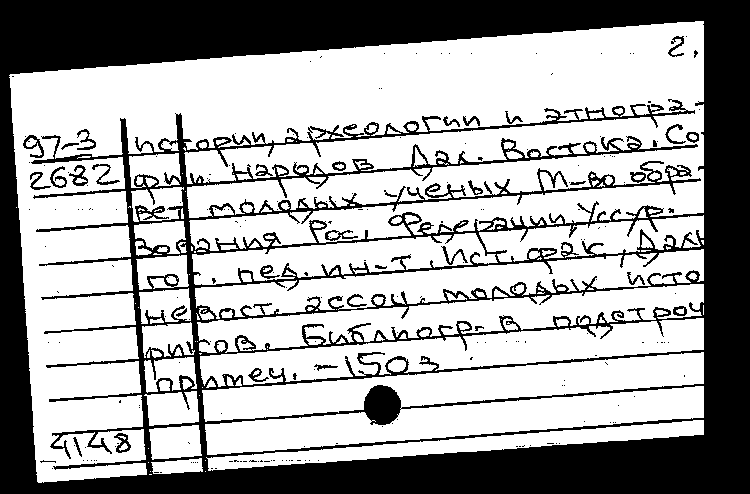 2.
97-3 истории, археологии и этногра-
2682 фии народов Дал. Востока. Со-
вет молодых ученых, М-во обра-
зования Рос. Федерации, Уссур.
гос. пед. ин-т. Ист. фак., Даль
невост. ассоц. молодых исто
риков. Библиогр. в подстроч
примеч. - 150 э
4148